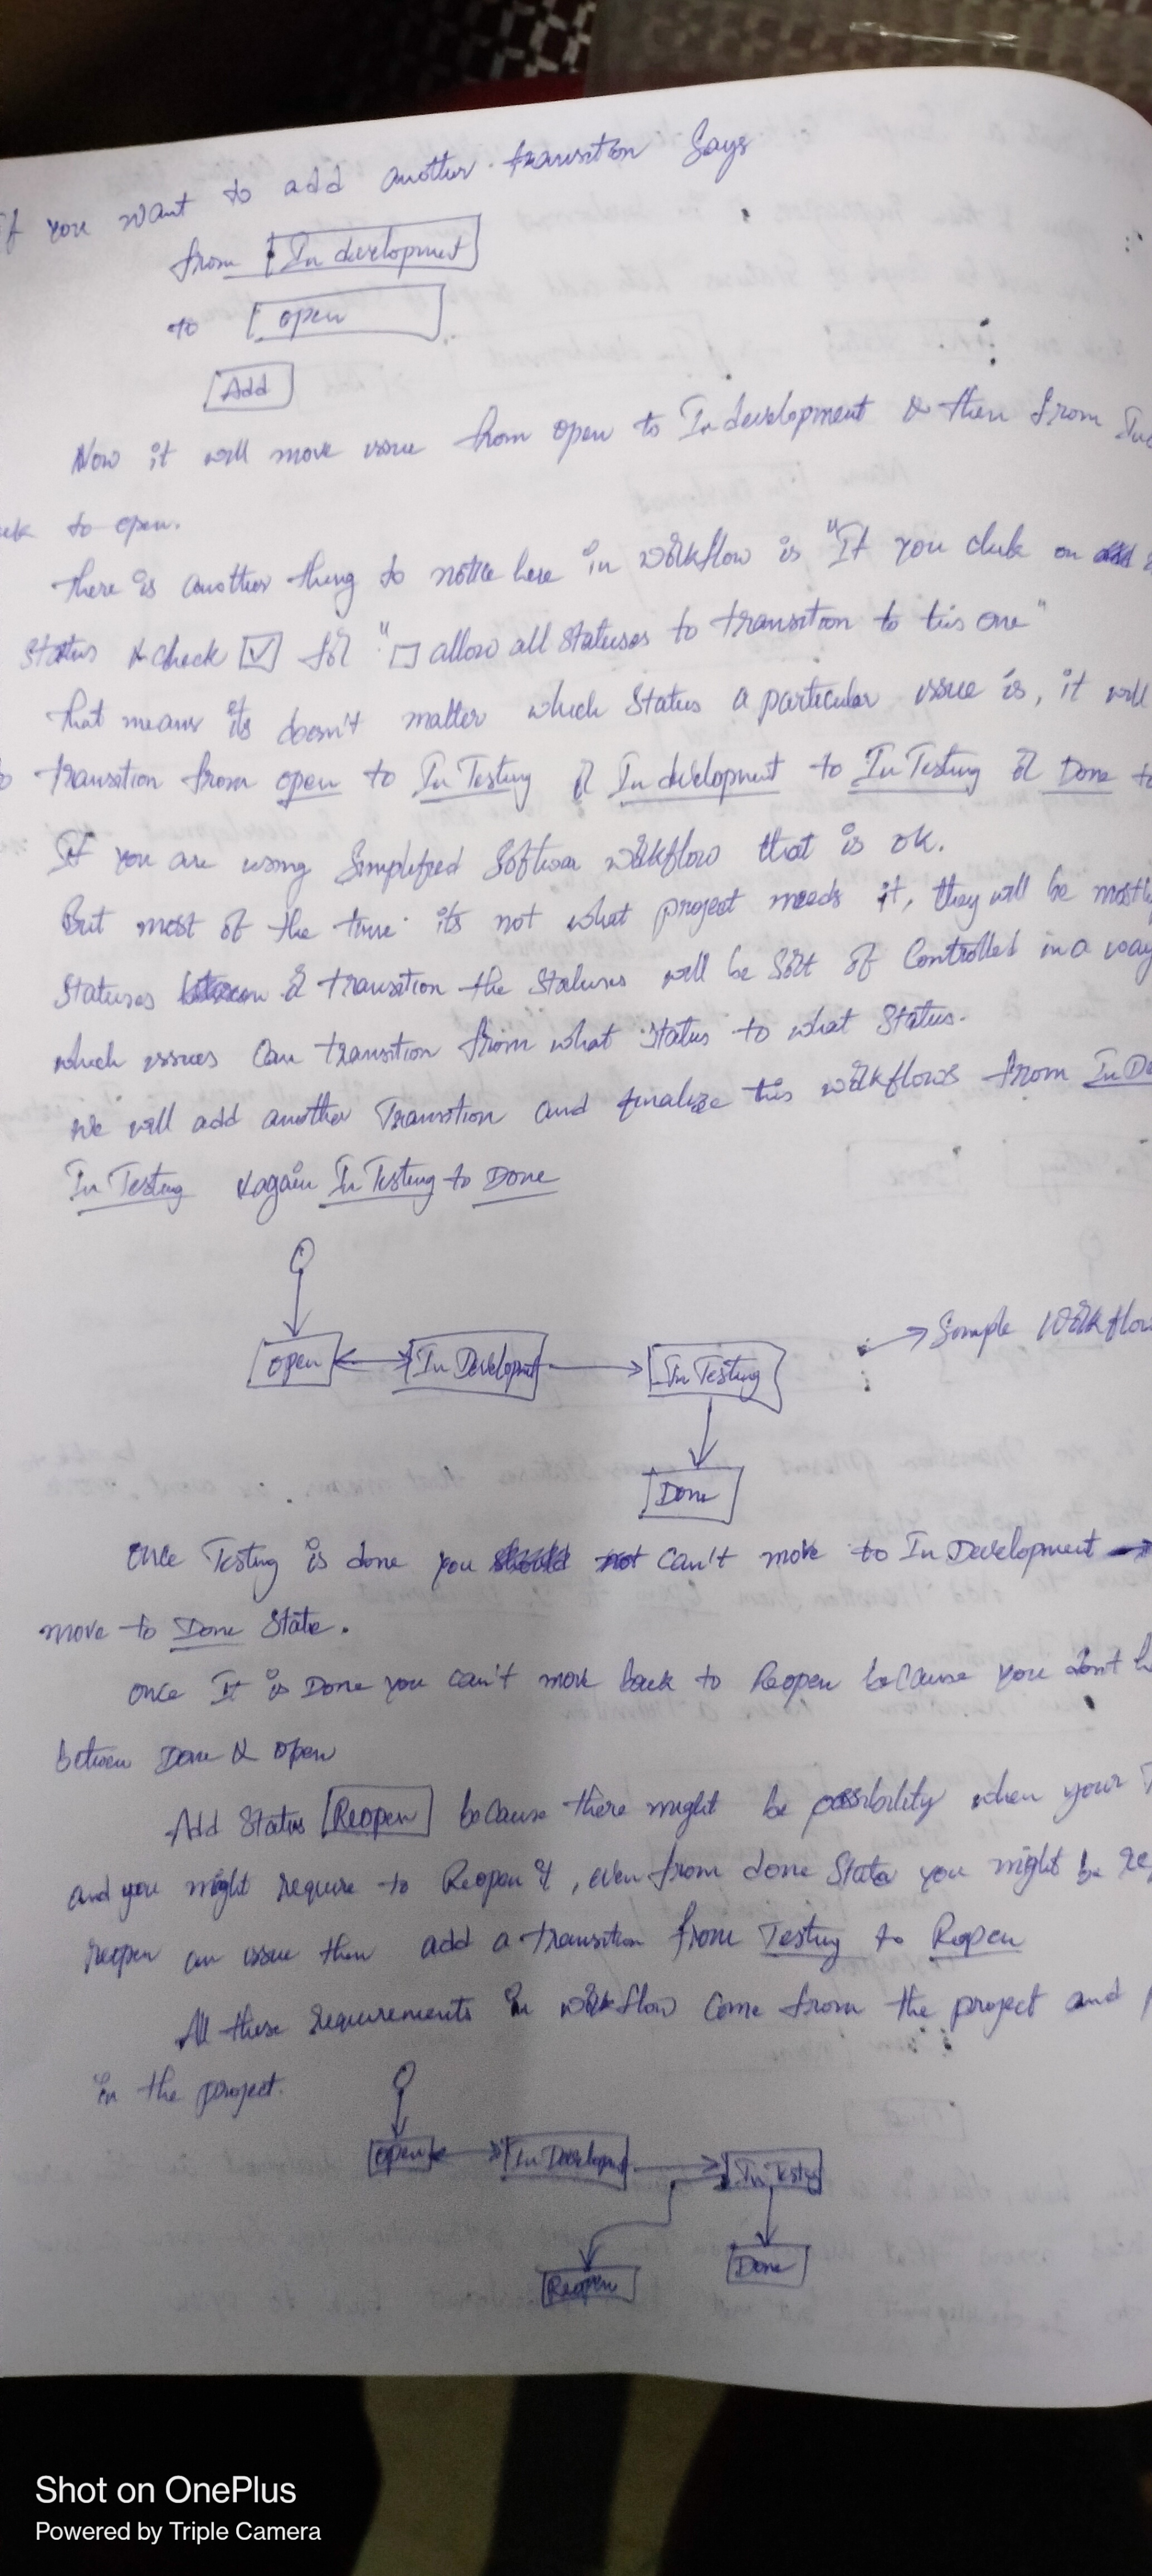 If you want to add another transition Says
from In development
to open
Add
Now it will move issue from open to In development & then from
to open.
There is another thing to notice here in workflow is "If you click on
Status & check for "allow all statuses to transition to this one"
that means its doesn't matter which Status a particular issue is, it will
transition from open to In Testing or In development to In Testing or Done to
If you are using Simplified Software workflow that is ok.
But most of the time its not what project needs it, they will be mostly
Statuses & transition the Statuses will be Sort of Controlled in a way
which issues Can transition from what status to what Status.
We will add another Transition and finalize this workflows from
In Testing & again In Testing to Done
open In Development In Testing Sample Workflow
Done
Once Testing is done you can't move to In Development
move to Done State.
Once It is Done you can't move back to Reopen because you don't
between Done & open
Add Status Reopen because there might be possibility when your
and you might require to Reopen it, even from done State you might be
reopen an issue then add a transition from Testing to Reopen
All these requirements in workflow come from the project and
in the project.
open In Developmt In Testing
Reopen Done
Shot on OnePlus
Powered by Triple Camera